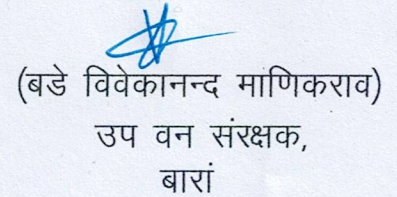 (बडे विवेकानन्द माणिकराव)
उप वन संरक्षक,
बारां